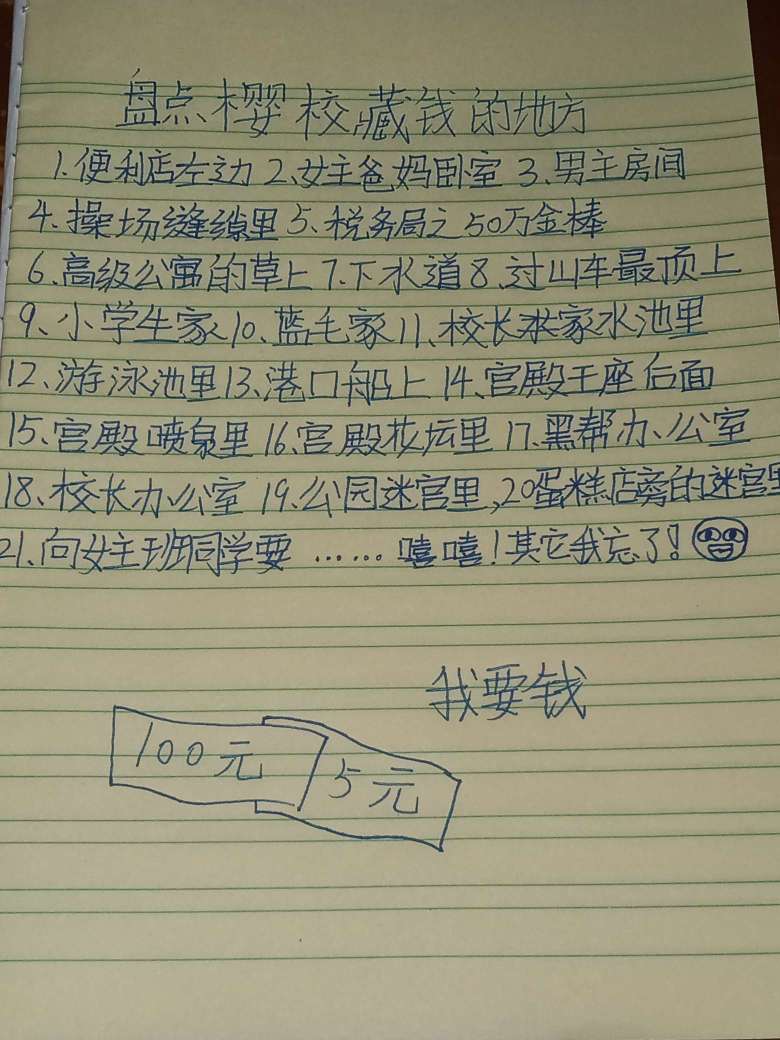 盘点樱校藏钱的地方
1.便利店左边 2、女主爸妈卧室 3、男主房间
4、操场缝缝里 5、税务局之50万金棒
6、高级公寓的草上 7.下水道 8、过山车最顶上
9、小学生家 10、蓝毛家 11、校长家水池里
12、游泳池里 13、港口船上 14、宫殿王座后面
15、宫殿喷泉里 16、宫殿花坛里 17、黑帮办公室
18、校长办公室 19、公园迷宫里,20蛋糕店旁的迷宫里
21、向女主班同学要 …… 嘻嘻!其它我忘了!
我要钱
100元 5元